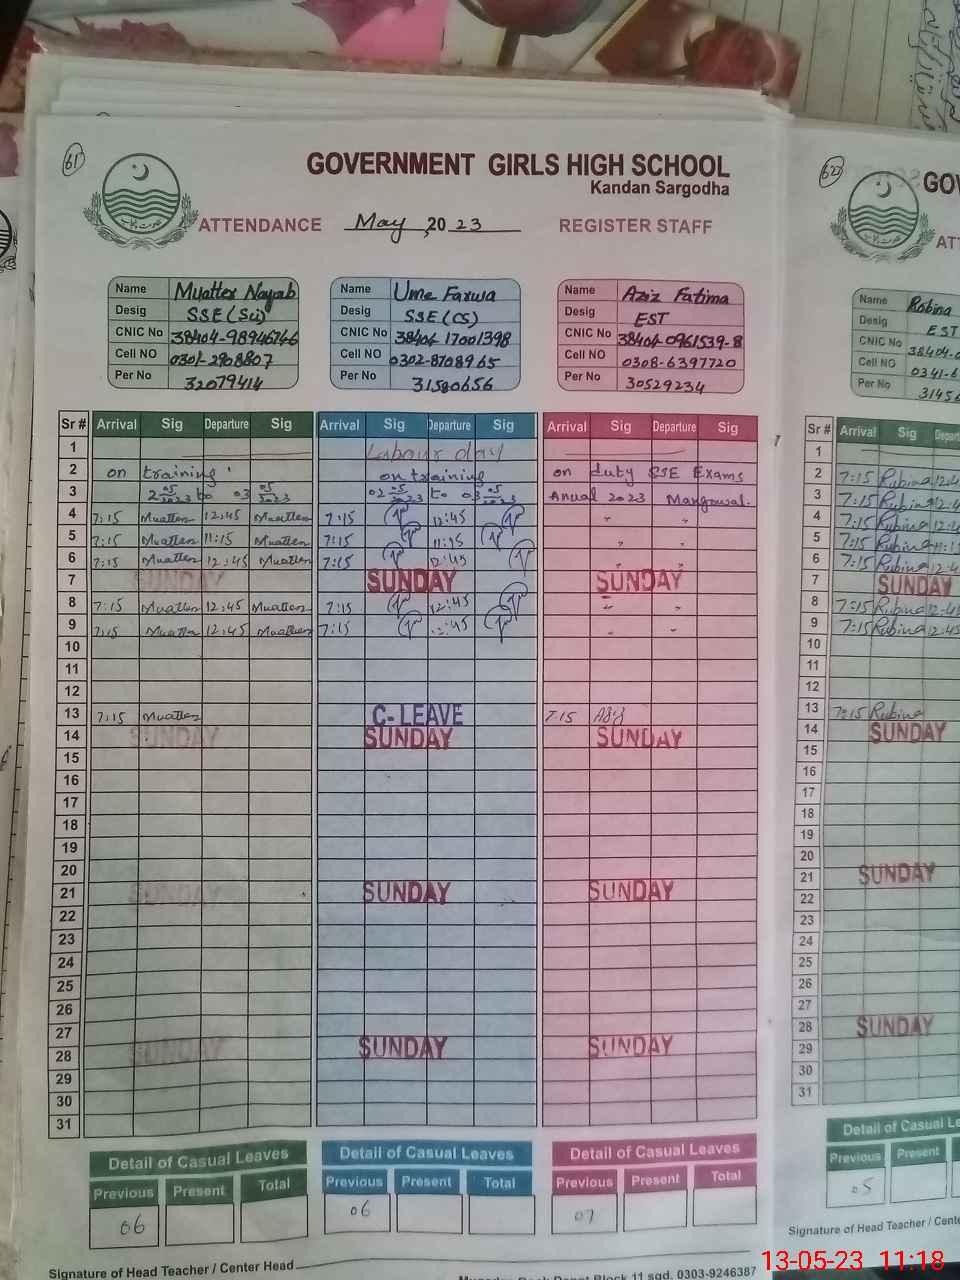 61
GOVERNMENT GIRLS HIGH SCHOOL
Kandan Sargodha
ATTENDANCE May, 2023 REGISTER STAFF
Name Muatter Nayab
Desig SSE (Sci)
CNIC No 38404-98946746
Cell NO 0301-2908807
Per No 32079414
Name Ume Farwa
Desig SSE (CS)
CNIC No 38404-17001398
Cell NO 0302-8708965
Per No 31580656
Name Aziz Fatima
Desig EST
CNIC No 38404-0961539-8
Cell NO 0308-6397720
Per No 30529234
Sr # Arrival Sig Departure Sig Arrival Sig Departure Sig Arrival Sig Departure Sig
1 Labour day
2 on training on training on duty SSE Exams
3 2 05 2023 to 03 05 2023 02 05 2023 to 03 05 2023 Anual 2023 Mangowal.
4 7:15 Muatter 12:45 Muatter 7:15 12:45 " "
5 7:15 Muatter 11:15 Muatter 7:15 11:15 " "
6 7:15 Muatter 12:45 Muatter 7:15 12:45 " "
7 SUNDAY SUNDAY SUNDAY
8 7:15 Muatter 12:45 Muatter 7:15 12:45 " "
9 7:15 Muatter 12:45 Muatter 7:15 12:45 " "
10
11
12
13 7:15 Muatter C-LEAVE 7:15
14 SUNDAY SUNDAY SUNDAY
15
16
17
18
19
20
21 SUNDAY SUNDAY SUNDAY
22
23
24
25
26
27
28 SUNDAY SUNDAY SUNDAY
29
30
31
Detail of Casual Leaves Detail of Casual Leaves Detail of Casual Leaves
Previous Present Total Previous Present Total Previous Present Total
06 06 07
Signature of Head Teacher / Center Head
Block 11 sgd. 0303-9246387
62
GO
AT
Name Robina
Desig EST
CNIC No 38404-0
Cell NO 0341-6
Per No 31456
Sr # Arrival Sig Depart
1
2 7:15 Rubina 12:4
3 7:15 Rubina 12:4
4 7:15 Rubina 12:4
5 7:15 Rubina 11:1
6 7:15 Rubina 12:4
7 SUNDAY
8 7:15 Rubina 12:45
9 7:15 Rubina 12:45
10
11
12
13 7:15 Rubina
14 SUNDAY
15
16
17
18
19
20
21 SUNDAY
22
23
24
25
26
27
28 SUNDAY
29
30
31
Detail of Casual Le
Previous Present
05
Signature of Head Teacher / Cente
13-05-23 11:18